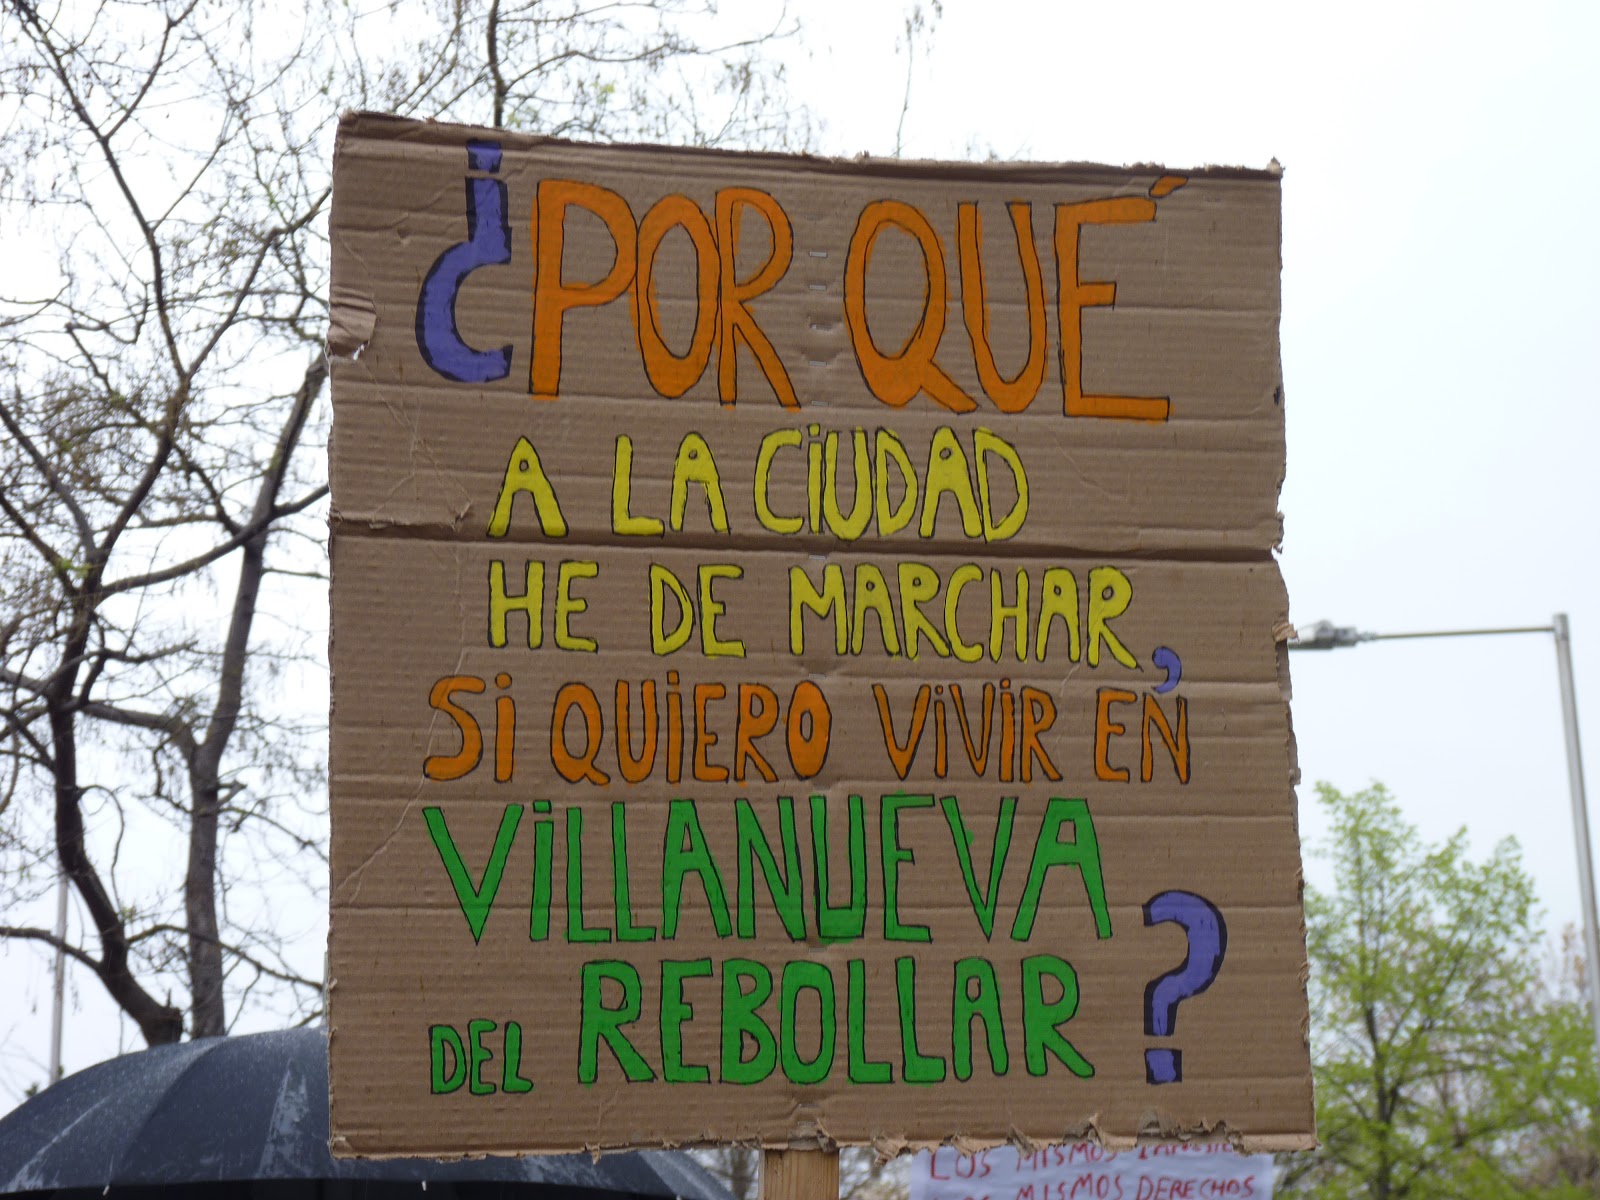 ¿POR QUÉ
A LA CIUDAD
HE DE MARCHAR,
SI QUIERO VIVIR EN
VILLANUEVA
DEL REBOLLAR?
LOS MISMOS
MISMOS DERECHOS